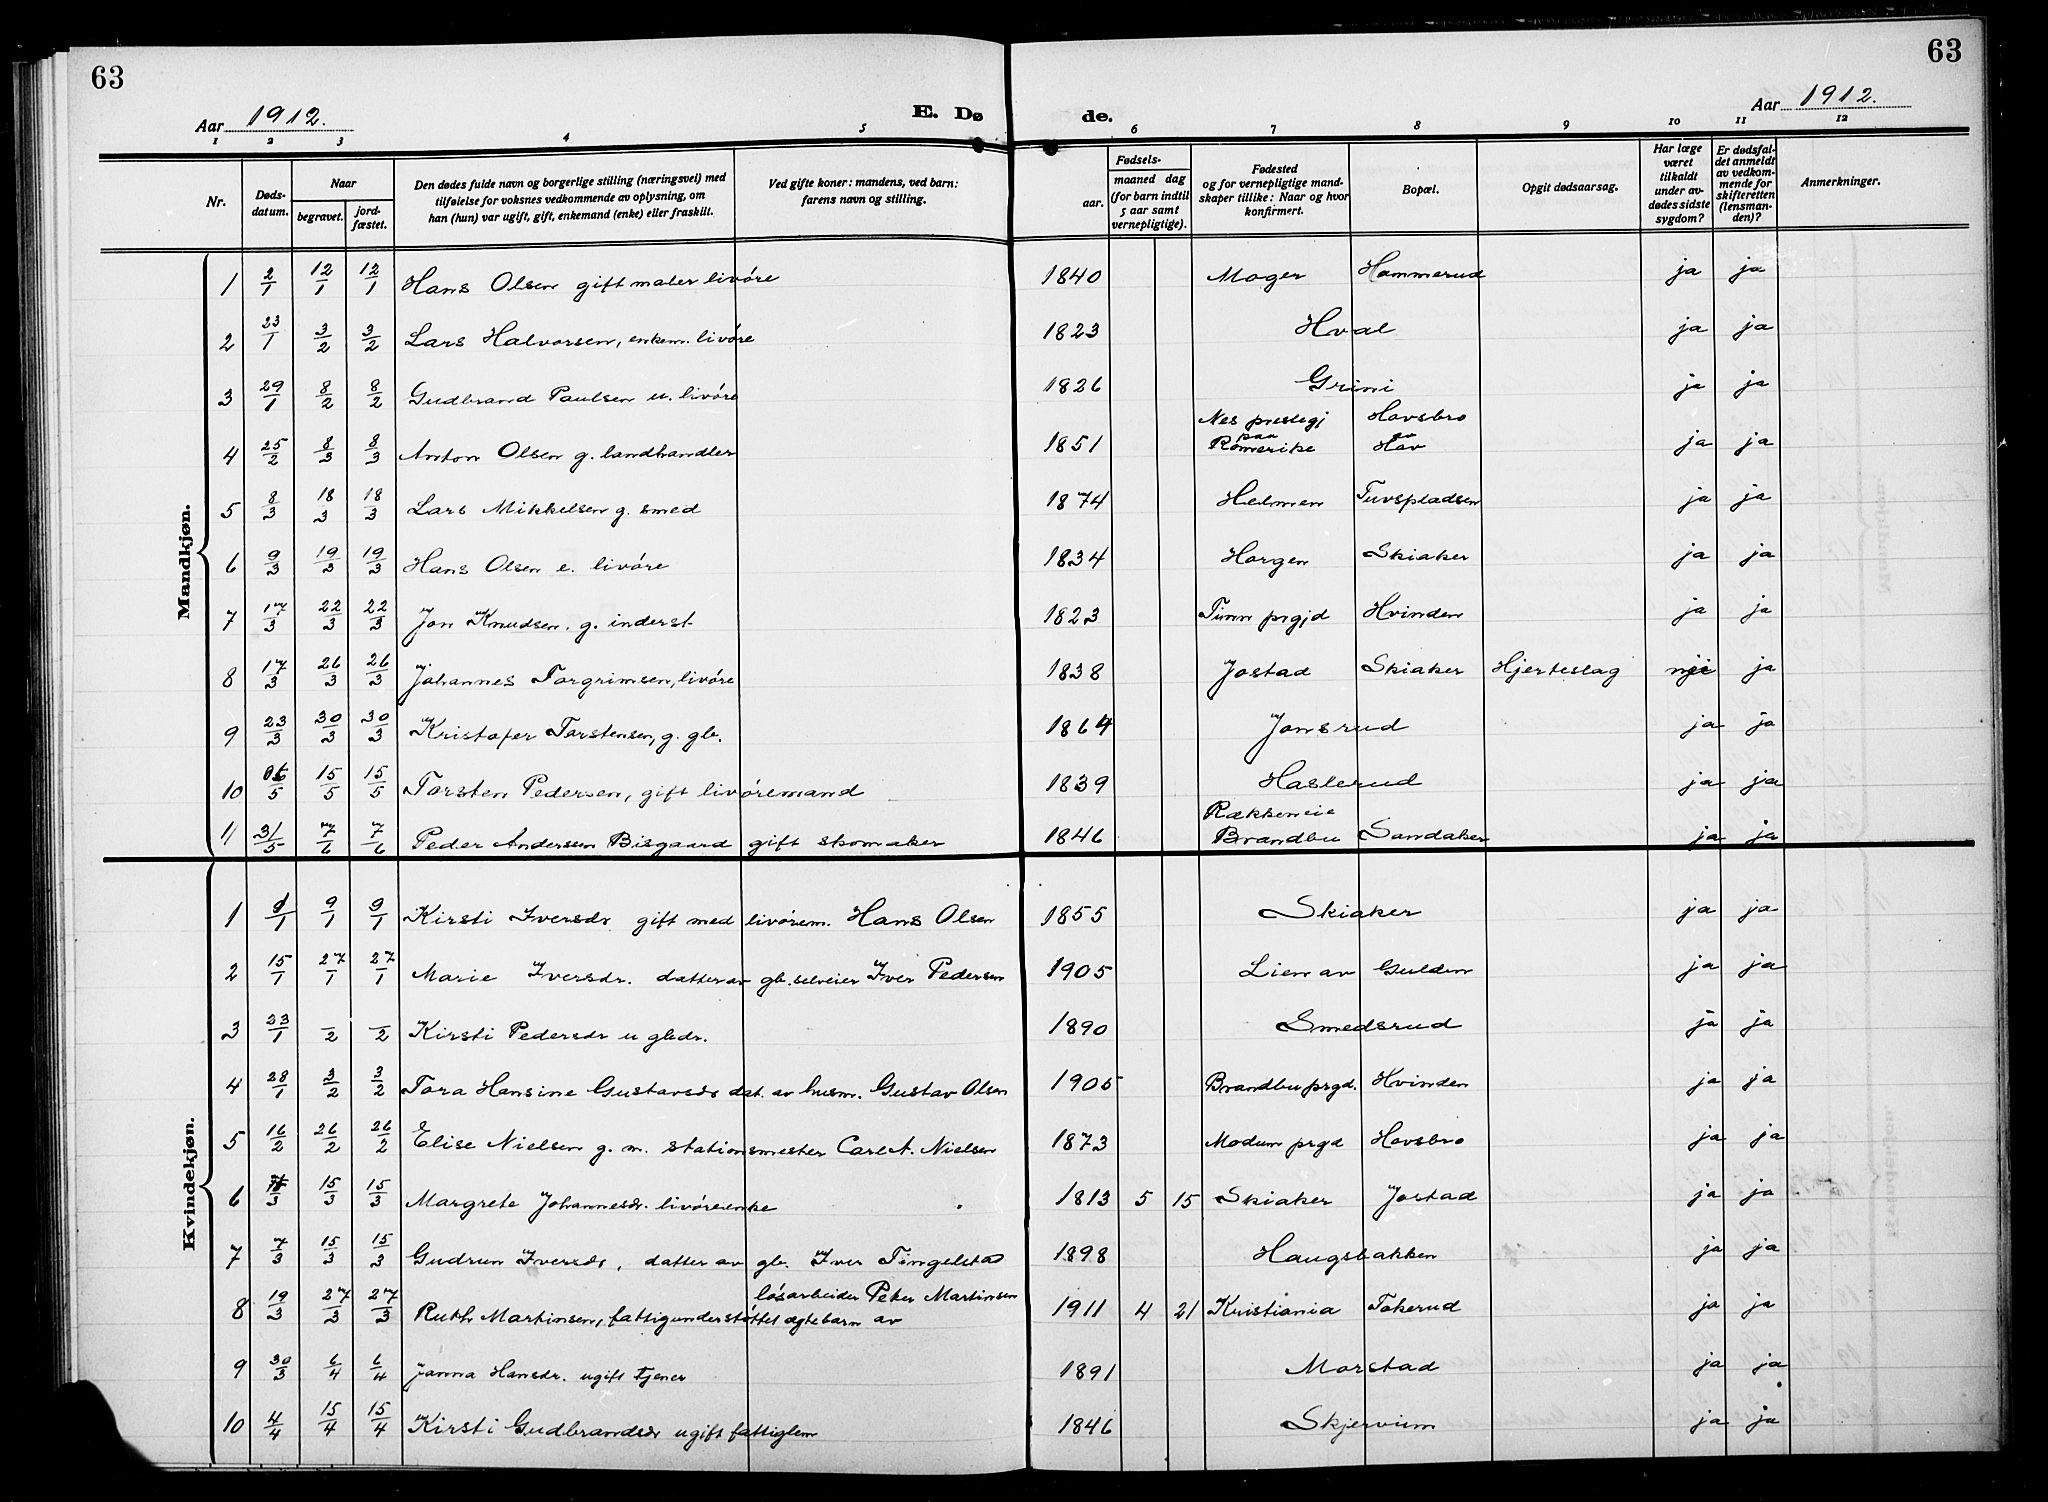 63
63
Aar 1912.
E. Dø de.
Aar 1912.
1 2 3 4 5 6 7 8 9 10 11 12
Nr.
Døds-
datum.
Naar
begravet.
jord-
fæstet.
Den dødes fulde navn og borgerlige stilling (næringsvei) med
tilføielse for voksnes vedkommende av oplysning, om
han (hun) var ugift, gift, enkemand (enke) eller fraskilt.
Ved gifte koner: mandens, ved barn:
farens navn og stilling.
Fødsels-
aar.
maaned dag
(for barn indtil
5 aar samt
vernepligtige).
Fødested
og for vernepligtige mand-
skaper tillike: Naar og hvor
konfirmert.
Bopæl.
Opgit dødsaarsag.
Har læge
været
tilkaldt
under av-
dødes sidste
sygdom?
Er dødsfal-
det anmeldt
av vedkom-
mende for
skifteretten
(lensman-
den)?
Anmerkninger.
Mandkjøn.
1 2/1 12/1 12/1 Hans Olsen gift maler livøre 1840 Moger Hammerud ja ja
2 23/1 3/2 3/2 Lars Halvorsen, enkem. livøre 1823 Hval ja ja
3 29/1 8/2 8/2 Gudbrand Paulsen u. livøre 1826 Grini ja ja
4 25/2 8/3 8/3 Anton Olsen g. landhandler 1851 Nes prestegj paa Romerike Hovsbro av Hov ja ja
5 8/3 18/3 18/3 Lars Mikkelsen g. smed 1874 Helmen Tuvspladsen ja ja
6 9/3 19/3 19/3 Hans Olsen e. livøre 1834 Horgen Skiaker ja ja
7 17/3 22/3 22/3 Jon Knudsen. g. inderst 1823 Tinn prgjd Hvinden ja ja
8 17/3 26/3 26/3 Johannes Torgrimsen, livøre 1838 Jostad Skiaker Hjerteslag nei ja
9 23/3 30/3 30/3 Kristofer Torstensen, g. gb. 1864 Jonsrud ja ja
10 /5 15/5 15/5 Torsten Pedersen, gift livøremand 1839 Haslerud ja ja
11 31/5 7/6 7/6 Peder Andersen Bisgaard gift skomaker 1846 Rækkeneie Brandbu Sandaker ja ja
Kvindekjøn.
1 1/1 9/1 9/1 Kirsti Iversdr gift med livørem. Hans Olsen 1855 Skiaker ja ja
2 15/1 27/1 27/1 Marie Iversdr. datter av gb. selveier Iver Pedersen 1905 Lien av Gulden ja ja
3 23/1 /2 /2 Kirsti Pedersdr u gbdr. 1890 Smedsrud ja ja
4 28/1 3/2 3/2 Tora Hansine Gustavsdr dat. av husm. Gustav Olsen 1905 Brandbu prgd. Hvinden ja ja
5 16/2 26/2 26/2 Elise Nielsen g. m. stationsmester Carl A. Nielsen 1873 Modum prgd Hovsbro ja ja
6 /3 15/3 15/3 Margrete Johannesdr. livøreenke 1813 5 15 Skiaker Jostad ja ja
7 7/3 15/3 15/3 Gudrun Iversdr, datter av gb. Iver Tingelstad 1898 Haugsbakken ja ja
8 19/3 27/3 27/3 Ruth Martinsen, fattigunderstøttet ægtebarn av løsarbeider Peter Martinsen 1911 4 21 Kristiania Tokerud ja ja
9 30/3 6/4 6/4 Janna Hansdr. ugift tjener 1891 Morstad ja ja
10 4/4 15/4 15/4 Kirsti Gudbrandsdr ugift fattiglem 1846 Skjervum ja ja